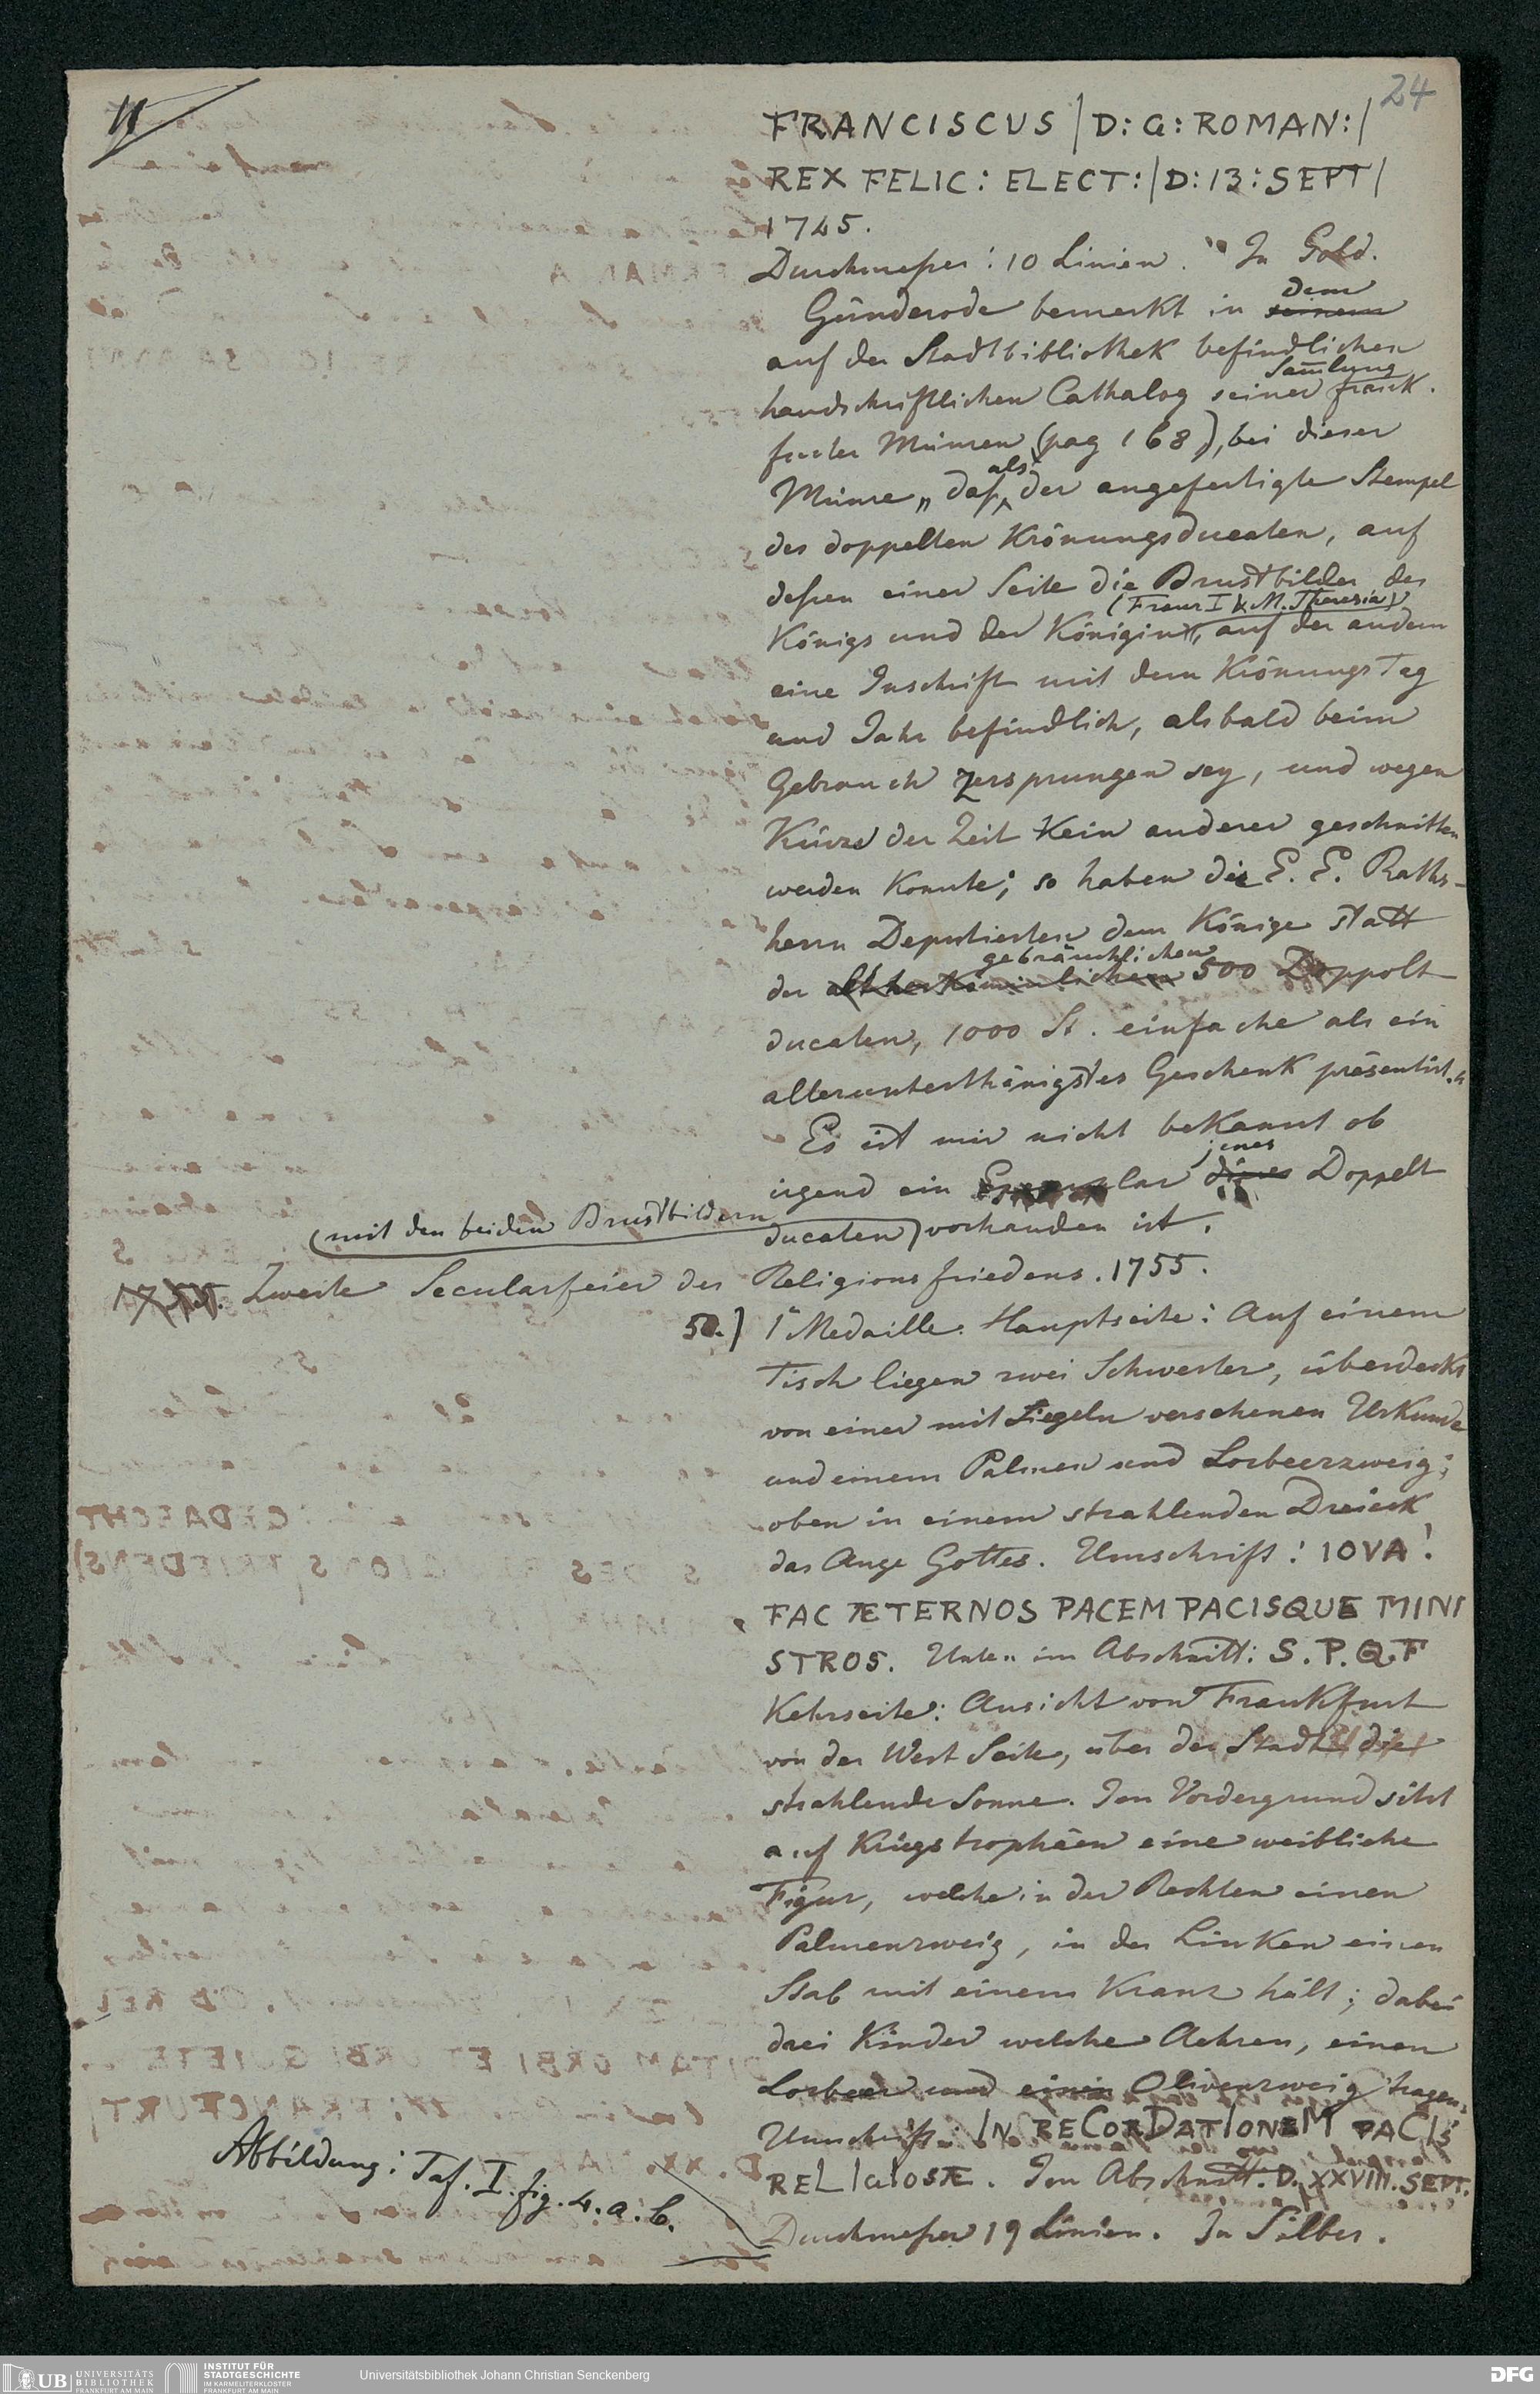 24
11
FRANCISCUS / D: G: ROMAN: /
REX FELIC: ELECT: / D: 13: SEPT /
1745.
Durchmeßer: 10 Linien. In Gold.
dem
Günderode bemerkt in seinem
auf der Stadtbibliothek befindlichen
Sam̅lung
handschriftlichen Cathalog seiner franck.
furter Münzen (pag 168), bei dieser
als
Münze „ daß der angefertigte Stempel
des doppelten Krönungsducaten, auf
deßen einer Seite die Brustbilder des
(Franz I & M. Theresia)
Königs und der Königin, auf der andern
eine Inschrift mit dem Krönungs Tag
und Jahr befindlich, alsbald beim
Gebrauch zersprungen sey, und wegen
Kürze der Zeit kein anderer geschnitten
werden konnte; so haben die E. E. Raths-
herrn Deputierten dem Könige statt
gebräuchlichen
der altherkömmlichen 500 Doppolt
ducaten, 1000 St. einfache als ein
allerunterthänigstes Geschenk präsentirt."
Es ist mir nicht bekannt ob
jenes
irgend ein Exemplar dieses Doppelt
(mit den beiden Brustbildern
ducaten) vorhanden ist.
1755. Zweite Secularfeier des Religionsfriedens. 1755.
50.) 1e Medaille. Hauptseite: Auf einem
Tisch liegen zwei Schwerter, überdeckt
von einer mit Siegeln versehenen Urkunde
und einem Palmen und Lorbeerzweig;
oben in einem strahlenden Dreieck
das Auge Gottes. Umschrift: IOVA!
FAC ÆTERNOS PACEM PACISQUE MINI
STROS. Unten im Abschnitt: S. P. Q. F
Kehrseite: Ansicht von Frankfurt
von der West Seite, über der Stadt die
strahlende Sonne. Im Vordergrund sitzt
auf Kriegstrophäen eine weibliche
Figur, welche in der Rechten einen
Palmenzweig, in der Linken einen
Stab mit einem Kranz hält; dabei
drei Kinder welche Aehren, einen
Lorbeer und einen Olivenzweig tragen.
Umschrift: IN RECORDATIONEM PACIS
RELIGIOSÆ. Im Abschnitt. D. XXVIII. SEPT.
Durchmeßer 19 Linien. In Silber.
Abbildung: Taf. I. fig. 4. a. b.
UB UNIVERSITÄTS
BIBLIOTHEK
FRANKFURT AM MAIN
INSTITUT FÜR
STADTGESCHICHTE
IM KARMELITERKLOSTER
FRANKFURT AM MAIN
Universitätsbibliothek Johann Christian Senckenberg
DFG